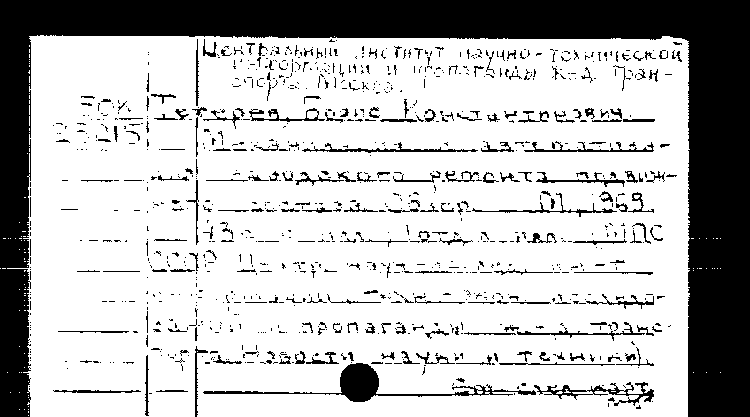 Центральный институт научно-технической
информации и пропаганды ж-д. тран-
спорта. Москва.
Тетерев, Борис Константинович.
Механизация и автоматиза-
ция заводского ремонта подвиж-
ного состава. Обзор. М., 1969.
43 с. с илл.; 1 отд. л. илл. (МПС
СССР. Центр. науч. ин-т
информации, техн.-экон. исследо-
ваний и пропаганды ж.-д. транс-
порта. Новости науки и техники).
См. след. карт.